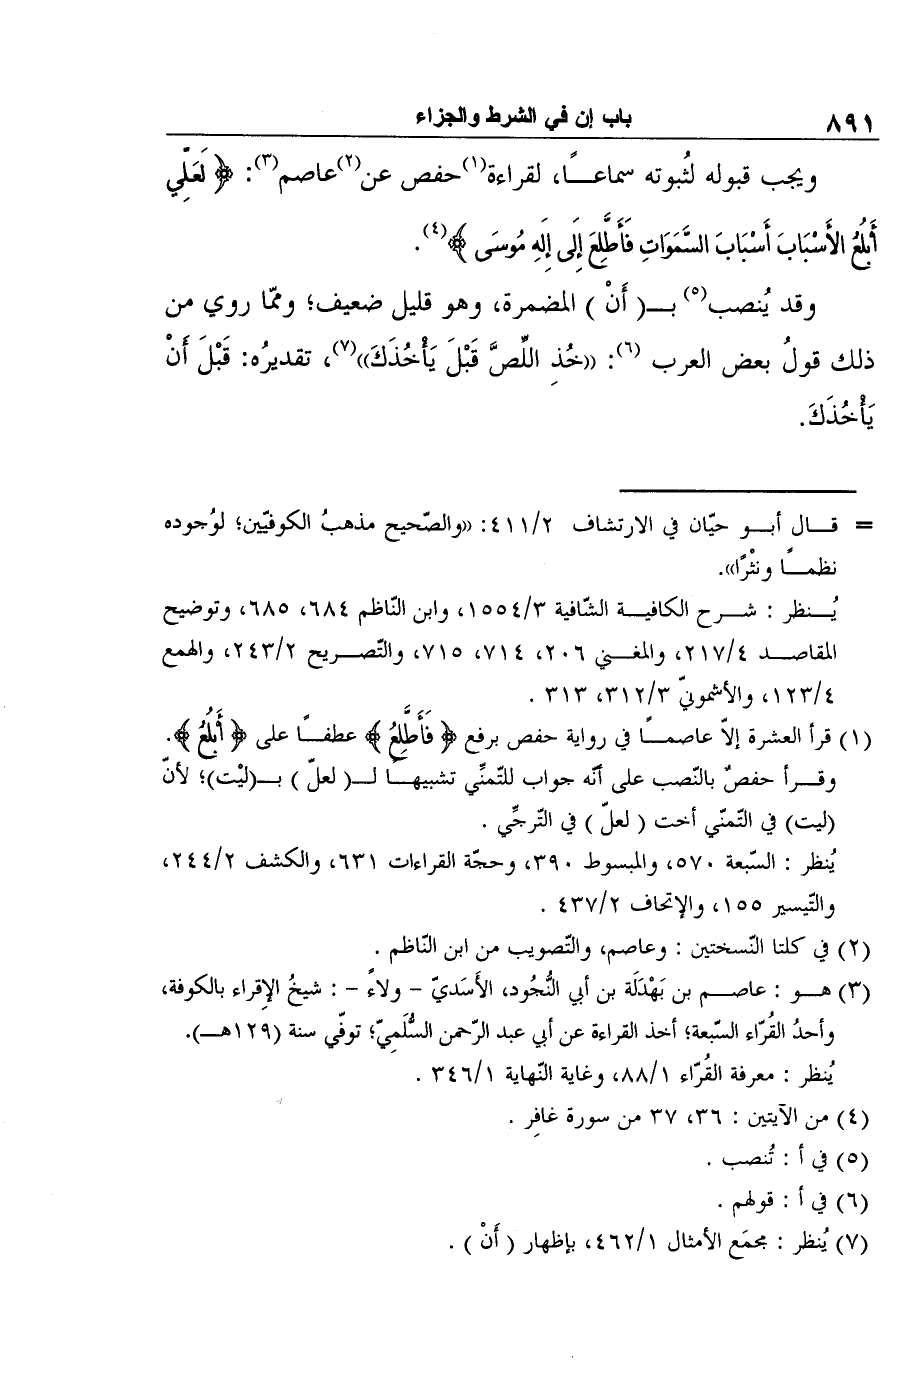 ٨٩١ باب إن في الشرط والجزاء
ويجب قبوله لثُبوته سماعـــاً، لقراءة(١) حفص عن(٢) عاصم(٣): ﴿ لَعَلِّي
أَبْلُغُ الأَسْبَابَ أَسْبَابَ السَّمَوَاتِ فَأَطَّلِعَ إِلَى إِلَهِ مُوسَى ﴾(٤).
وقد يُنصب(٥) بـــ( أَنْ ) المضمرة، وهو قليل ضعيف؛ وممّا روي من
ذلك قولُ بعض العرب (٦): «خُذِ اللِّصَّ قَبْلَ يَأْخُذَكَ»(٧)، تقديرُه: قَبْلَ أَنْ
يَأْخُذَكَ.
= قـــال أبـــو حيّان في الارتشاف ٤١١/٢: «والصّحيح مذهبُ الكوفيّين؛ لوُجوده
نظمـــاً ونثْرًا».
يُـــنظر : شـــرح الكافيـــة الشّافية ١٥٥٤/٣، وابن النّاظم ٦٨٤، ٦٨٥، وتوضيح
المقاصـــد ٢١٧/٤، والمغـــني ٢٠٦، ٧١٤، ٧١٥، والتّصـــريح ٢٤٣/٢، والهمع
١٢٣/٤، والأشمونيّ ٣١٢/٣، ٣١٣ .
(١) قرأ العشرة إلاّ عاصمـــاً في رواية حفص برفع ﴿ فَأَطَّلِعُ ﴾ عطفـــاً على ﴿ أَبْلُغُ ﴾.
وقـــرأ حفصٌ بالنّصب على أنّه جواب للتّمنِّي تشبيهـــاً لـــ( لعلّ ) بـــ(ليْت)؛ لأنّ
(ليت) في التّمنّي أخت ( لعلّ ) في التّرجِّي .
يُنظر : السّبعة ٥٧٠، والمبسوط ٣٩٠، وحجّة القراءات ٦٣١، والكشف ٢٤٤/٢،
والتّيسير ١٥٥، والإتحاف ٤٣٧/٢ .
(٢) في كلتا النّسختين : وعاصم، والتّصويب من ابن النّاظم .
(٣) هـــو : عاصـــم بن بَهْدَلَة بن أبي النُّجُود، الأَسَديّ - ولاءً - : شيخُ الإقراء بالكوفة،
وأحدُ القُرّاء السّبعة؛ أخذ القراءة عن أبي عبد الرّحمن السُّلَميّ؛ توفّي سنة (١٢٩هـــ).
يُنظر : معرفة القُرّاء ٨٨/١، وغاية النّهاية ٣٤٦/١ .
(٤) من الآيتين : ٣٦، ٣٧ من سورة غافِر .
(٥) في أ : تُنصب .
(٦) في أ : قولهم .
(٧) يُنظر : مجمَع الأمثال ٤٦٢/١، بإظهار ( أَنْ ) .